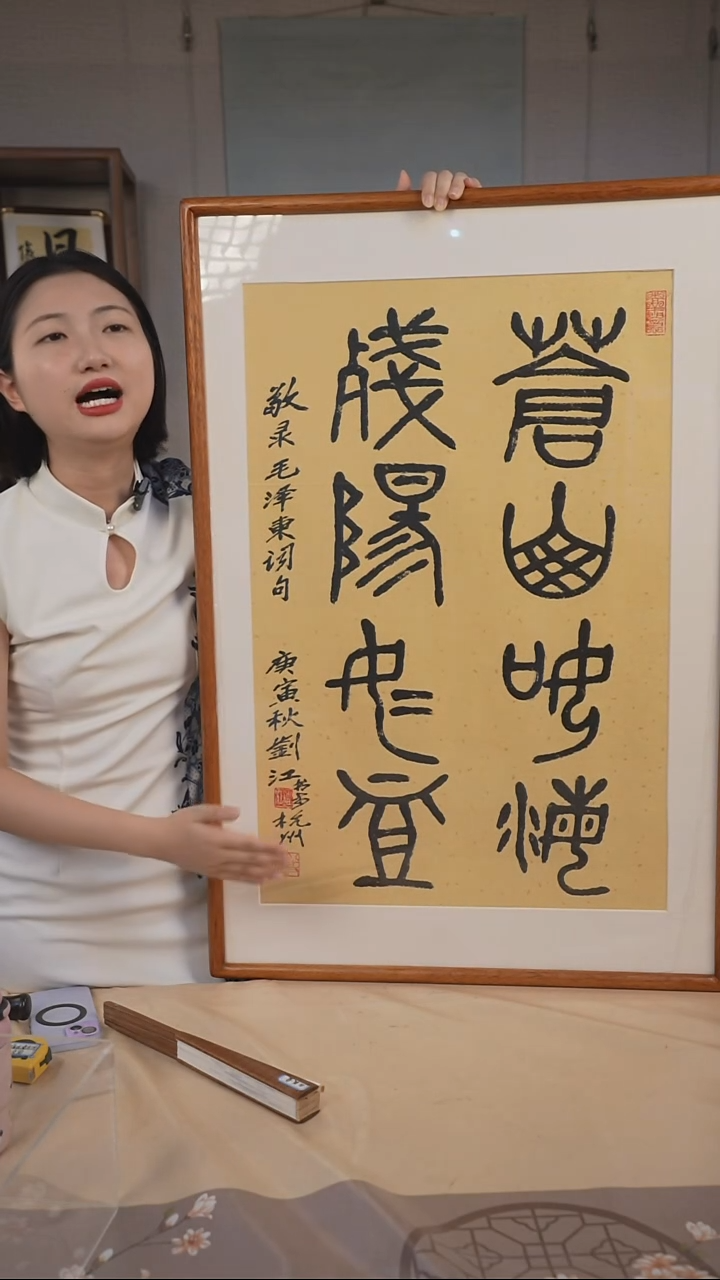 蒼山如海
殘陽如血
敬录毛泽東词句
庚寅秋劉江
杭州